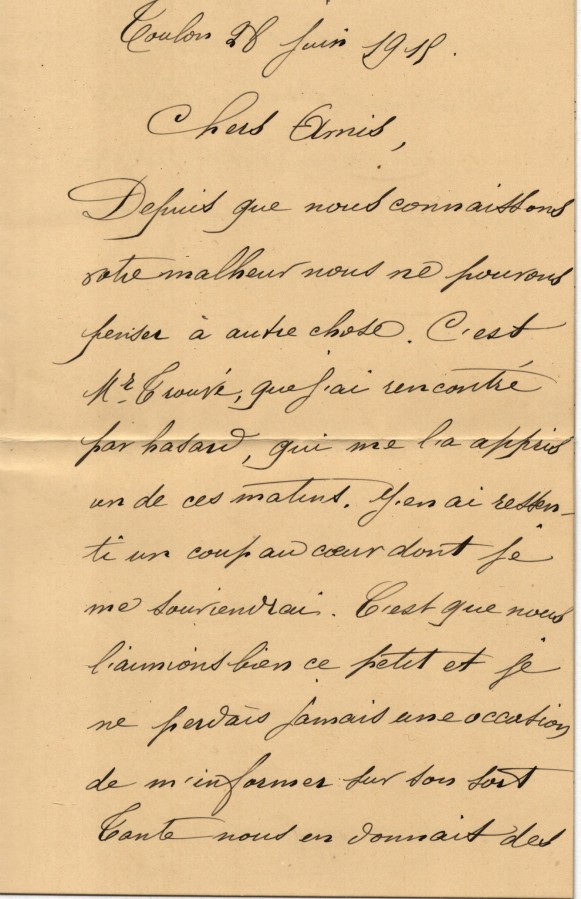 Toulon 28 Juin 1915.
Chers Amis,
Depuis que nous connaissons
votre malheur nous ne pouvons
penser à autre chose. C'est
Mr Trouvé, que j'ai rencontré
par hasard, qui me l'a appris
un de ces matins. J'en ai ressen-
ti un coup au cœur dont je
me souviendrai. C'est que nous
l'aimions bien ce petit et je
ne perdais jamais une occasion
de m'informer sur son sort
Tante nous en donnait des